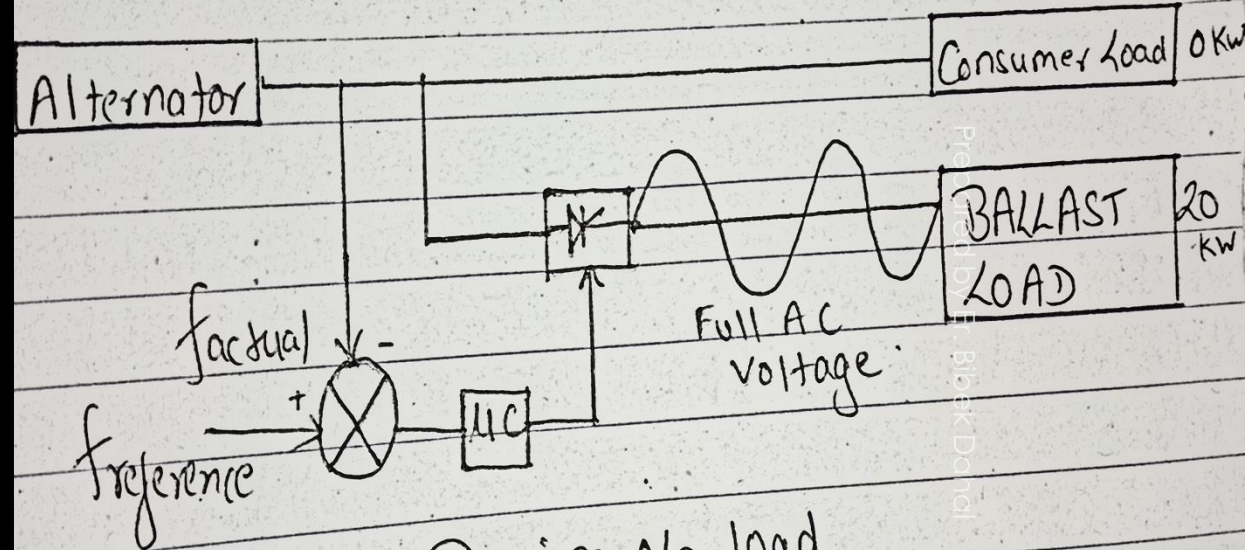 Alternator
Consumer Load
0 KW
BALLAST
LOAD
20
KW
Full AC
Voltage
factual
-
+
freference
μC
No load
Prepared by Er. Bibek Danai